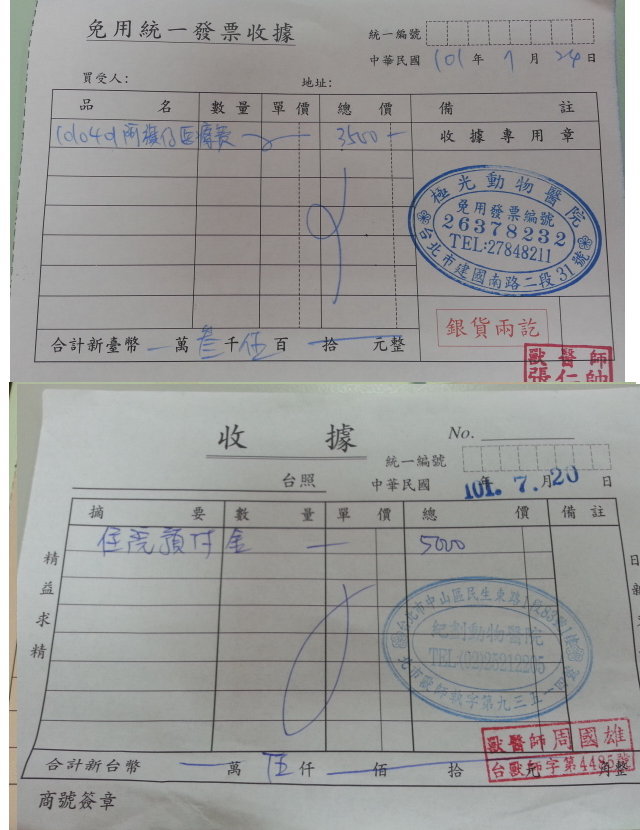 免用統一發票收據
統一編號
中華民國 101 年 7 月 24 日
買受人: 地址:
品 名 數量 單價 總 價 備 註
醫療費 3500
收據專用章
極光動物醫院
免用發票編號
26378232
TEL:27848211
台北市建國南路二段31號
銀貨兩訖
合計新臺幣 萬 叁 千 伍 百 拾 元整
獸醫師
張仁帥
收 據
No.
統一編號
台照
中華民國 101. 年 7. 月 20 日
摘 要 數 量 單 價 總 價 備 註
住院預付金 一 5000
精益求精
日新
台北市中山區民生東路
動物醫院
獸醫師 周國雄
台獸師字第4485號
合計新台幣 萬 伍 仟 佰 拾 元 角整
商號簽章